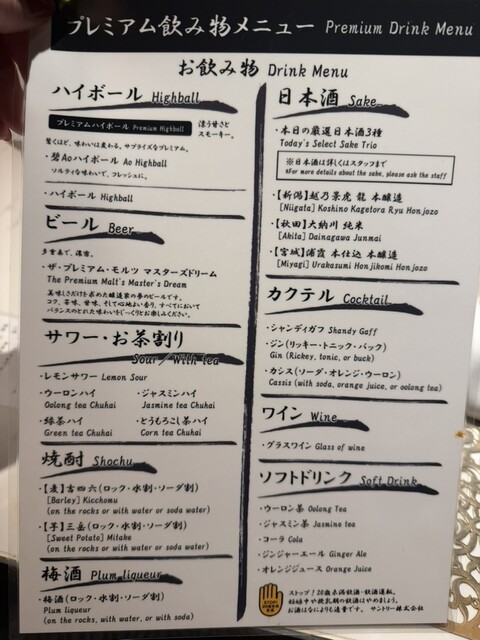 プレミアム飲み物メニュー Premium Drink Menu
お飲み物 Drink Menu
ハイボール Highball
プレミアムハイボール Premium Highball
漂う甘さと
スモーキー。
驚くほど、味わいは変わる。サプライズなプレミアム。
・碧Aoハイボール Ao Highball
ソルティな味わいで、フレッシュに。
・ハイボール Highball
ビール Beer
多重奏で、濃密。
・ザ・プレミアム・モルツ マスターズドリーム
The Premium Malt's Master's Dream
美味しさだけを求めた醸造家の夢のビールです。
コク、苦味、香味、そして心地よい香り、すべてにおいて
バランスのとれた味わいをじっくりとお愉しみください。
サワー・お茶割り
Sour／With tea
・レモンサワー Lemon Sour
・ウーロンハイ
Oolong tea Chuhai
・ジャスミンハイ
Jasmine tea Chuhai
・緑茶ハイ
Green tea Chuhai
・とうもろこし茶ハイ
Corn tea Chuhai
焼酎 Shochu
・【麦】吉四六(ロック・水割・ソーダ割)
[Barley] Kicchomu
(on the rocks or with water or soda water)
・【芋】三岳(ロック・水割・ソーダ割)
[Sweet Potato] Mitake
(on the rocks or with water or soda water)
梅酒 Plum liqueur
・梅酒(ロック・水割・ソーダ割)
Plum liqueur
(on the rocks, with water, or with soda)
日本酒 Sake
・本日の厳選日本酒3種
Today's Select Sake Trio
※日本酒は詳しくはスタッフまで
※For more details about the sake, please ask the staff
・【新潟】越乃景虎 龍 本醸造
[Niigata] Koshino Kagetora Ryu Honjozo
・【秋田】大納川 純米
[Akita] Dainagawa Junmai
・【宮城】浦霞 本仕込 本醸造
[Miyagi] Urakasumi Honjikomi Honjozo
カクテル Cocktail
・シャンディガフ Shandy Gaff
・ジン(リッキー・トニック・バック)
Gin (Rickey, tonic, or buck)
・カシス(ソーダ・オレンジ・ウーロン)
Cassis (with soda, orange juice, or oolong tea)
ワイン Wine
・グラスワイン Glass of wine
ソフトドリンク Soft Drink
・ウーロン茶 Oolong Tea
・ジャスミン茶 Jasmine tea
・コーラ Cola
・ジンジャーエール Ginger Ale
・オレンジジュース Orange Juice
ストップ！20歳未満飲酒・飲酒運転。
妊娠中や授乳期の飲酒はやめましょう。
お酒はなによりも適量です。 サントリー株式会社